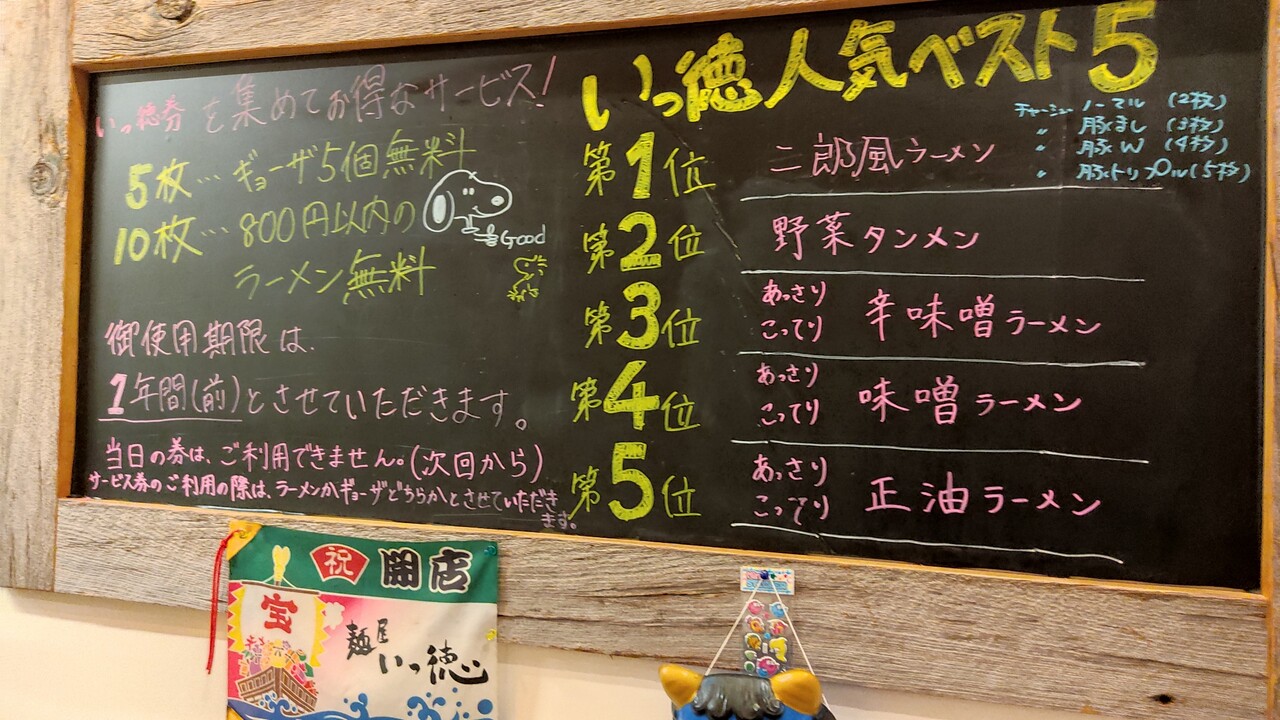 いっ徳券を集めてお得なサービス!
5枚…ギョーザ5個無料
10枚…800円以内の
ラーメン無料
Good
御使用期限は
1年間(前)とさせていただきます。
当日の券は、ご利用できません。(次回から)
サービス券のご利用の際は、ラーメンかギョーザどちらかとさせていただき
ます。
いっ徳人気ベスト5
チャーシューノーマル(2枚)
〃 豚まし(3枚)
〃 豚W(4枚)
〃 豚トリプル(5枚)
第1位 二郎風ラーメン
第2位 野菜タンメン
第3位 あっさり こってり 辛味噌ラーメン
第4位 あっさり こってり 味噌ラーメン
第5位 あっさり こってり 正油ラーメン
祝 開店
宝
麺屋
いっ徳